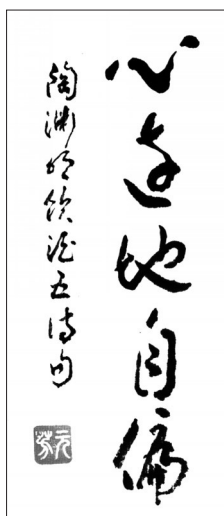 心遠地自偏
陶淵明飲酒五詩句